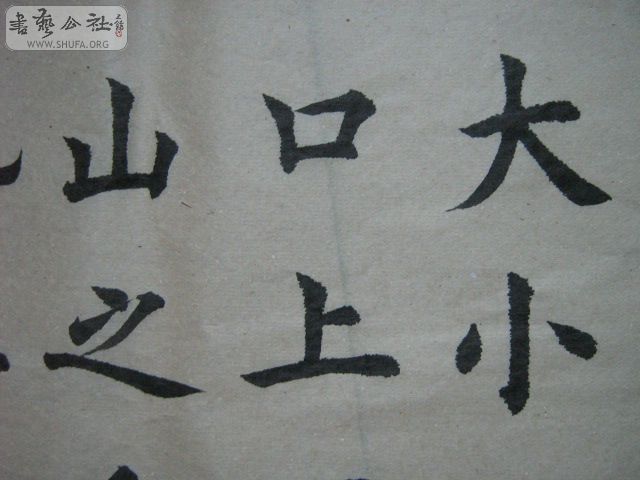 大小
口上
山之
書藝公社
WWW.SHUFA.ORG